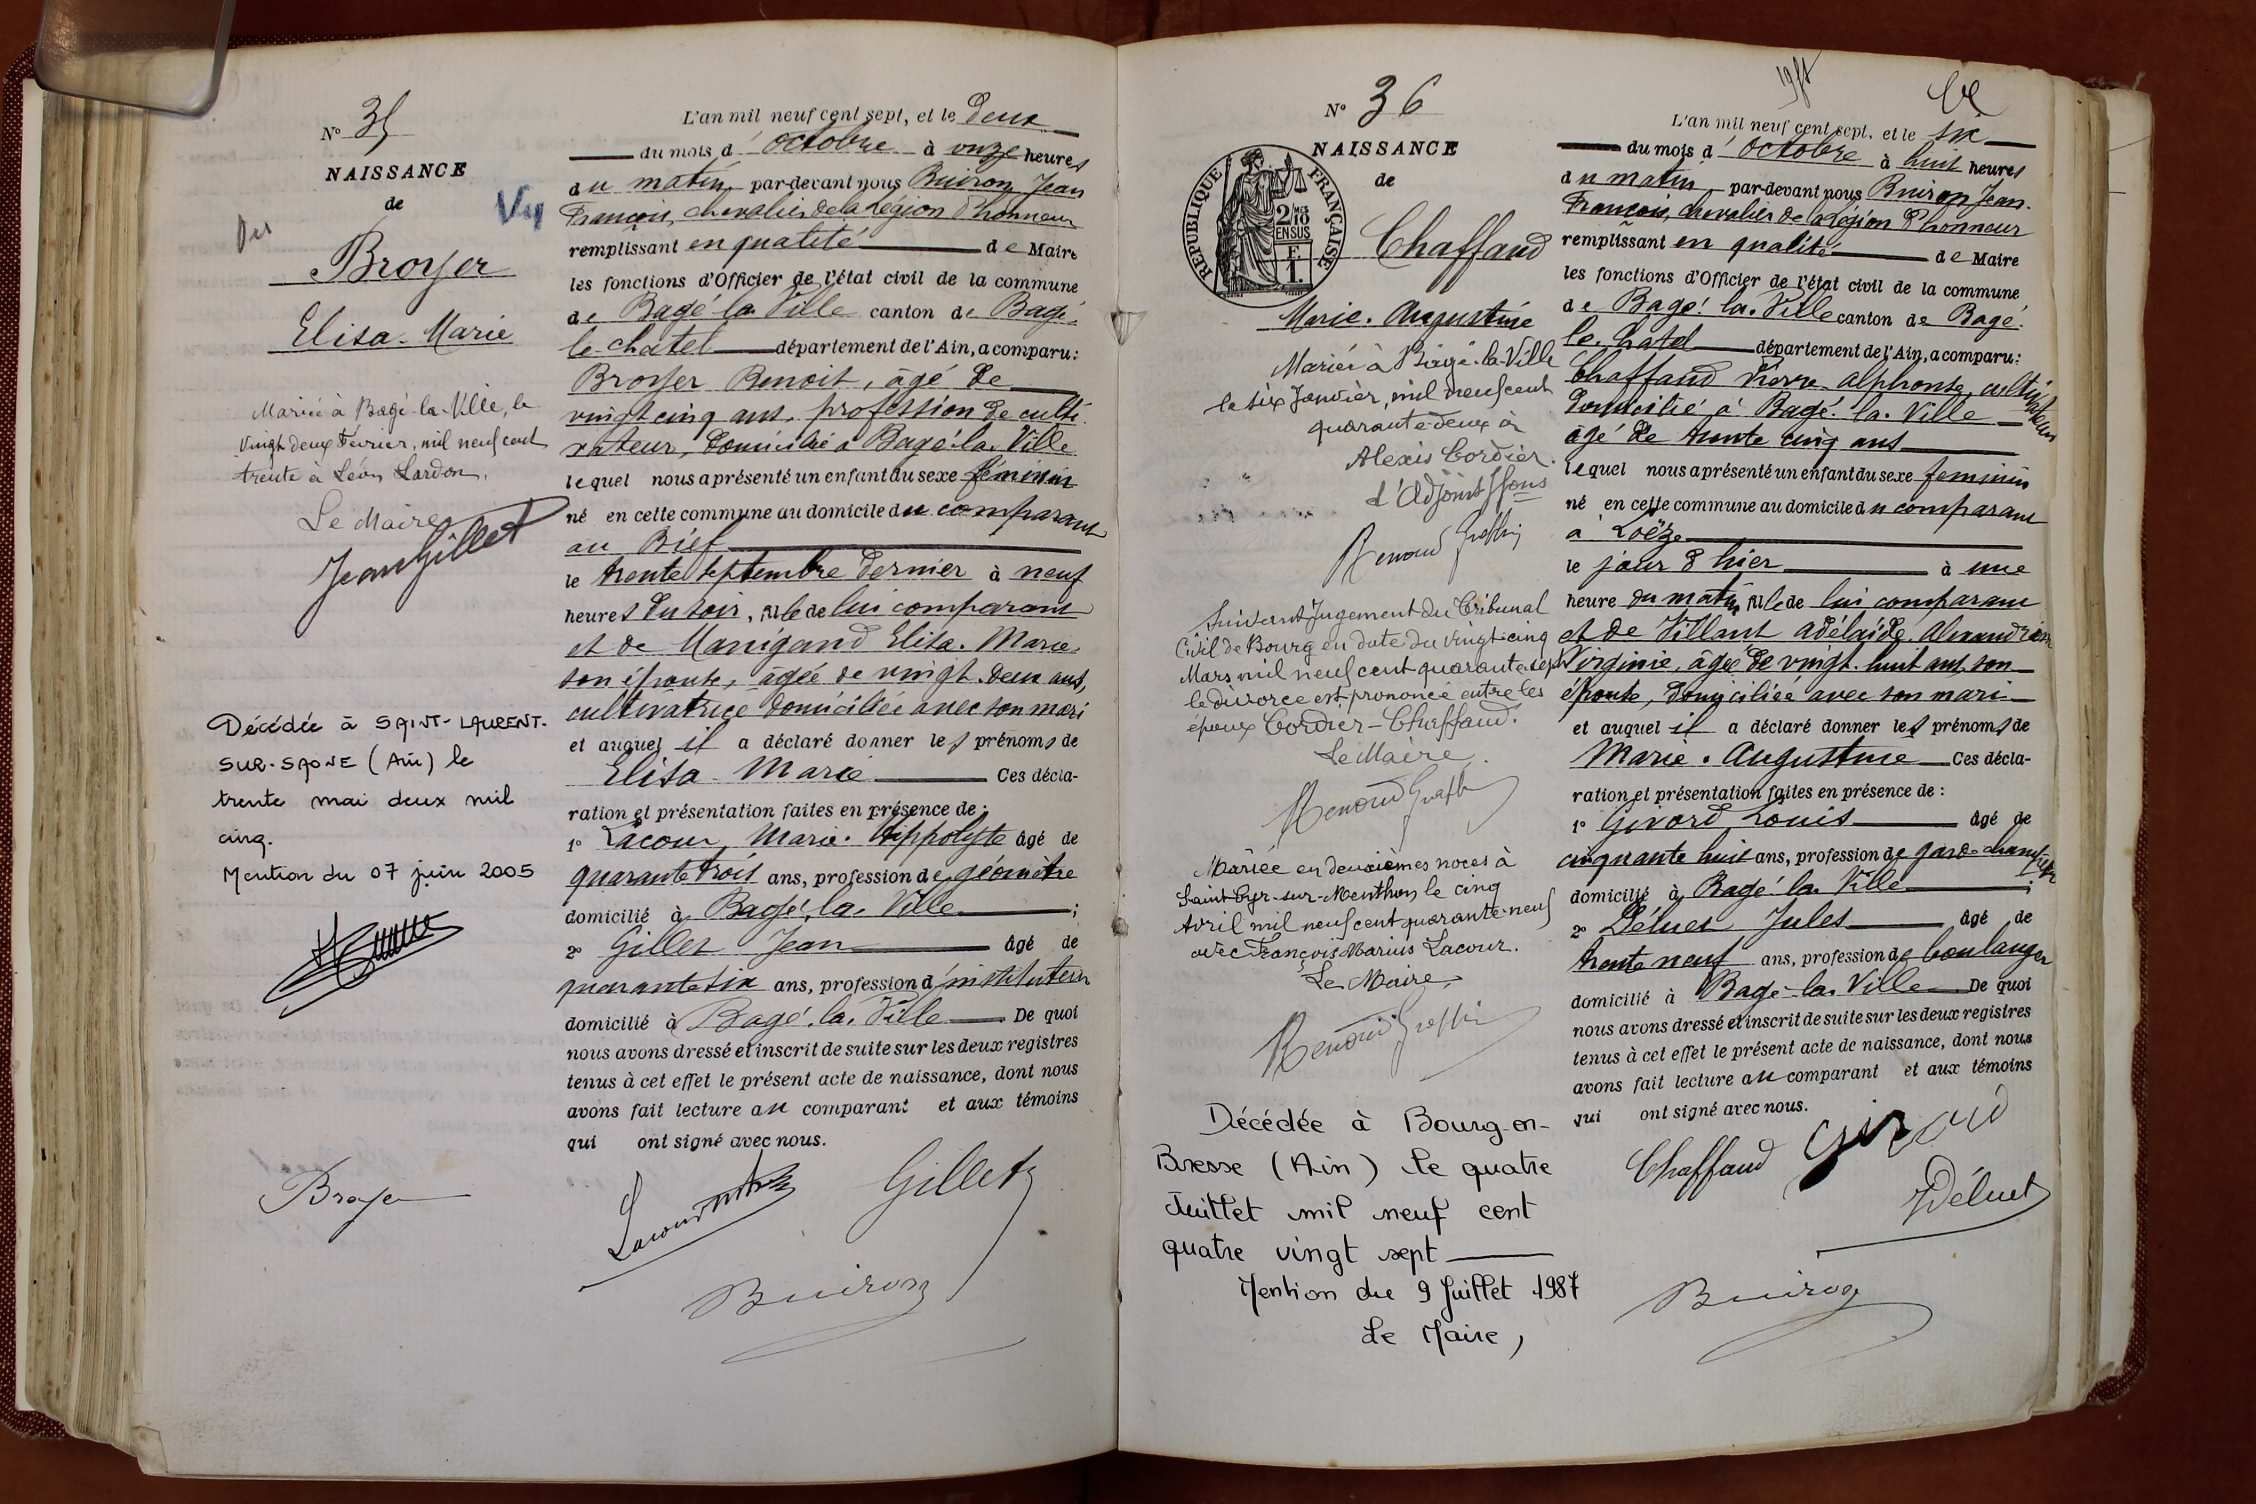 N° 35
NAISSANCE
de
Broyer
Elisa-Marie
Mariée à Bagé-la-Ville, le
vingt deux Février, mil neuf cent
trente à Léon Lardon.
Le Maire
Jean Gillet
Décédée à SAINT-LAURENT-
SUR-SAONE (Ain) le
trente mai deux mil
cinq.
Mention du 07 juin 2005
L'an mil neuf cent sept, et le deux
du mois d'octobre à onze heures
du matin par-devant nous Buiron Jean
François, chevalier de la Légion d'honneur
remplissant en qualité de Maire
les fonctions d'Officier de l'état civil de la commune
de Bagé-la-Ville canton de Bagé-
le-chatel département de l'Ain, a comparu:
Broyer Benoit, âgé de
vingt cinq ans, profession de culti-
vateur, domicilié à Bagé-la-Ville
lequel nous a présenté un enfant du sexe féminin
né en cette commune au domicile du comparant
au Bief
le trente septembre dernier à neuf
heures du soir, fille de lui comparant
et de Manigand Elisa-Marie,
son épouse, âgée de vingt-deux ans,
cultivatrice domiciliée avec son mari
et auquel il a déclaré donner les prénoms de
Elisa-Marie Ces décla-
ration et présentation faites en présence de:
1° Lacour, Marie-Hippolyte âgé de
quarante trois ans, profession de géomètre
domicilié à Bagé-la-Ville;
2° Gillet Jean âgé de
quarante six ans, profession d'instituteur
domicilié à Bagé-la-Ville De quoi
nous avons dressé et inscrit de suite sur les deux registres
tenus à cet effet le présent acte de naissance, dont nous
avons fait lecture au comparant et aux témoins
qui ont signé avec nous.
Broyer Lacour Gillet
Buiron
N° 36
NAISSANCE
de
RÉPUBLIQUE FRANÇAISE
2/10 MES
EN SUS
1 F
Chaffaud
Marie-Augustine
Mariée à Bâgé-la-Ville
le six Janvier, mil neuf cent
quarante-deux à
Alexis Cordier.
l'Adjoint ffons
Renoud Graffin
Suivant Jugement du Tribunal
Civil de Bourg en date du vingt-cinq
Mars mil neuf cent quarante sept
le divorce est prononcé entre les
époux Cordier-Chaffaud.
Le Maire
Renoud Graffin
Mariée en deuxièmes noces à
Saint-Cyr-sur-Menthon le cinq
Avril mil neuf cent quarante-neuf
avec François Marius Lacour.
Le Maire,
Renoud Graffin
Décédée à Bourg-en-
Bresse (Ain) le quatre
Juillet mil neuf cent
quatre vingt sept
Mention du 9 Juillet 1987
Le Maire,
L'an mil neuf cent sept, et le six
du mois d'octobre à huit heures
du matin, par-devant nous Buiron Jean-
François, chevalier de la Légion d'honneur
remplissant en qualité de Maire
les fonctions d'Officier de l'état civil de la commune
de Bagé-la-Ville canton de Bagé-
le-chatel département de l'Ain, a comparu:
Chaffaud Pierre-alphonse, cultivateur
domicilié à Bagé-la-Ville
âgé de trente cinq ans
lequel nous a présenté un enfant du sexe feminin
né en cette commune au domicile du comparant
à Loëze
le jour d'hier à une
heure du matin fille de lui comparant
et de Villant adélaïde-alexandrine
Virginie, âgée de vingt-huit ans, son
épouse, domiciliée avec son mari
et auquel il a déclaré donner les prénoms de
Marie-Augustine Ces décla-
ration et présentation faites en présence de:
1° Girard Louis âgé de
cinquante huit ans, profession de garde-champêtre
domicilié à Bagé-la-Ville;
2° Déluet Jules âgé de
trente neuf ans, profession de boulanger
domicilié à Bagé-la-Ville De quoi
nous avons dressé et inscrit de suite sur les deux registres
tenus à cet effet le présent acte de naissance, dont nous
avons fait lecture au comparant et aux témoins
qui ont signé avec nous.
Chaffaud Girard
J Déluet
Buiron